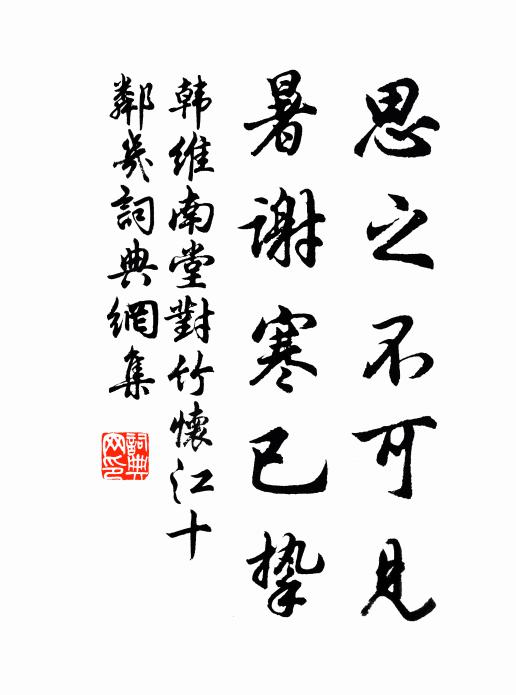 思之不可見
暑谢寒已挚
韩維南堂對竹懷江十
鄰幾詞典網集
詞典
网印